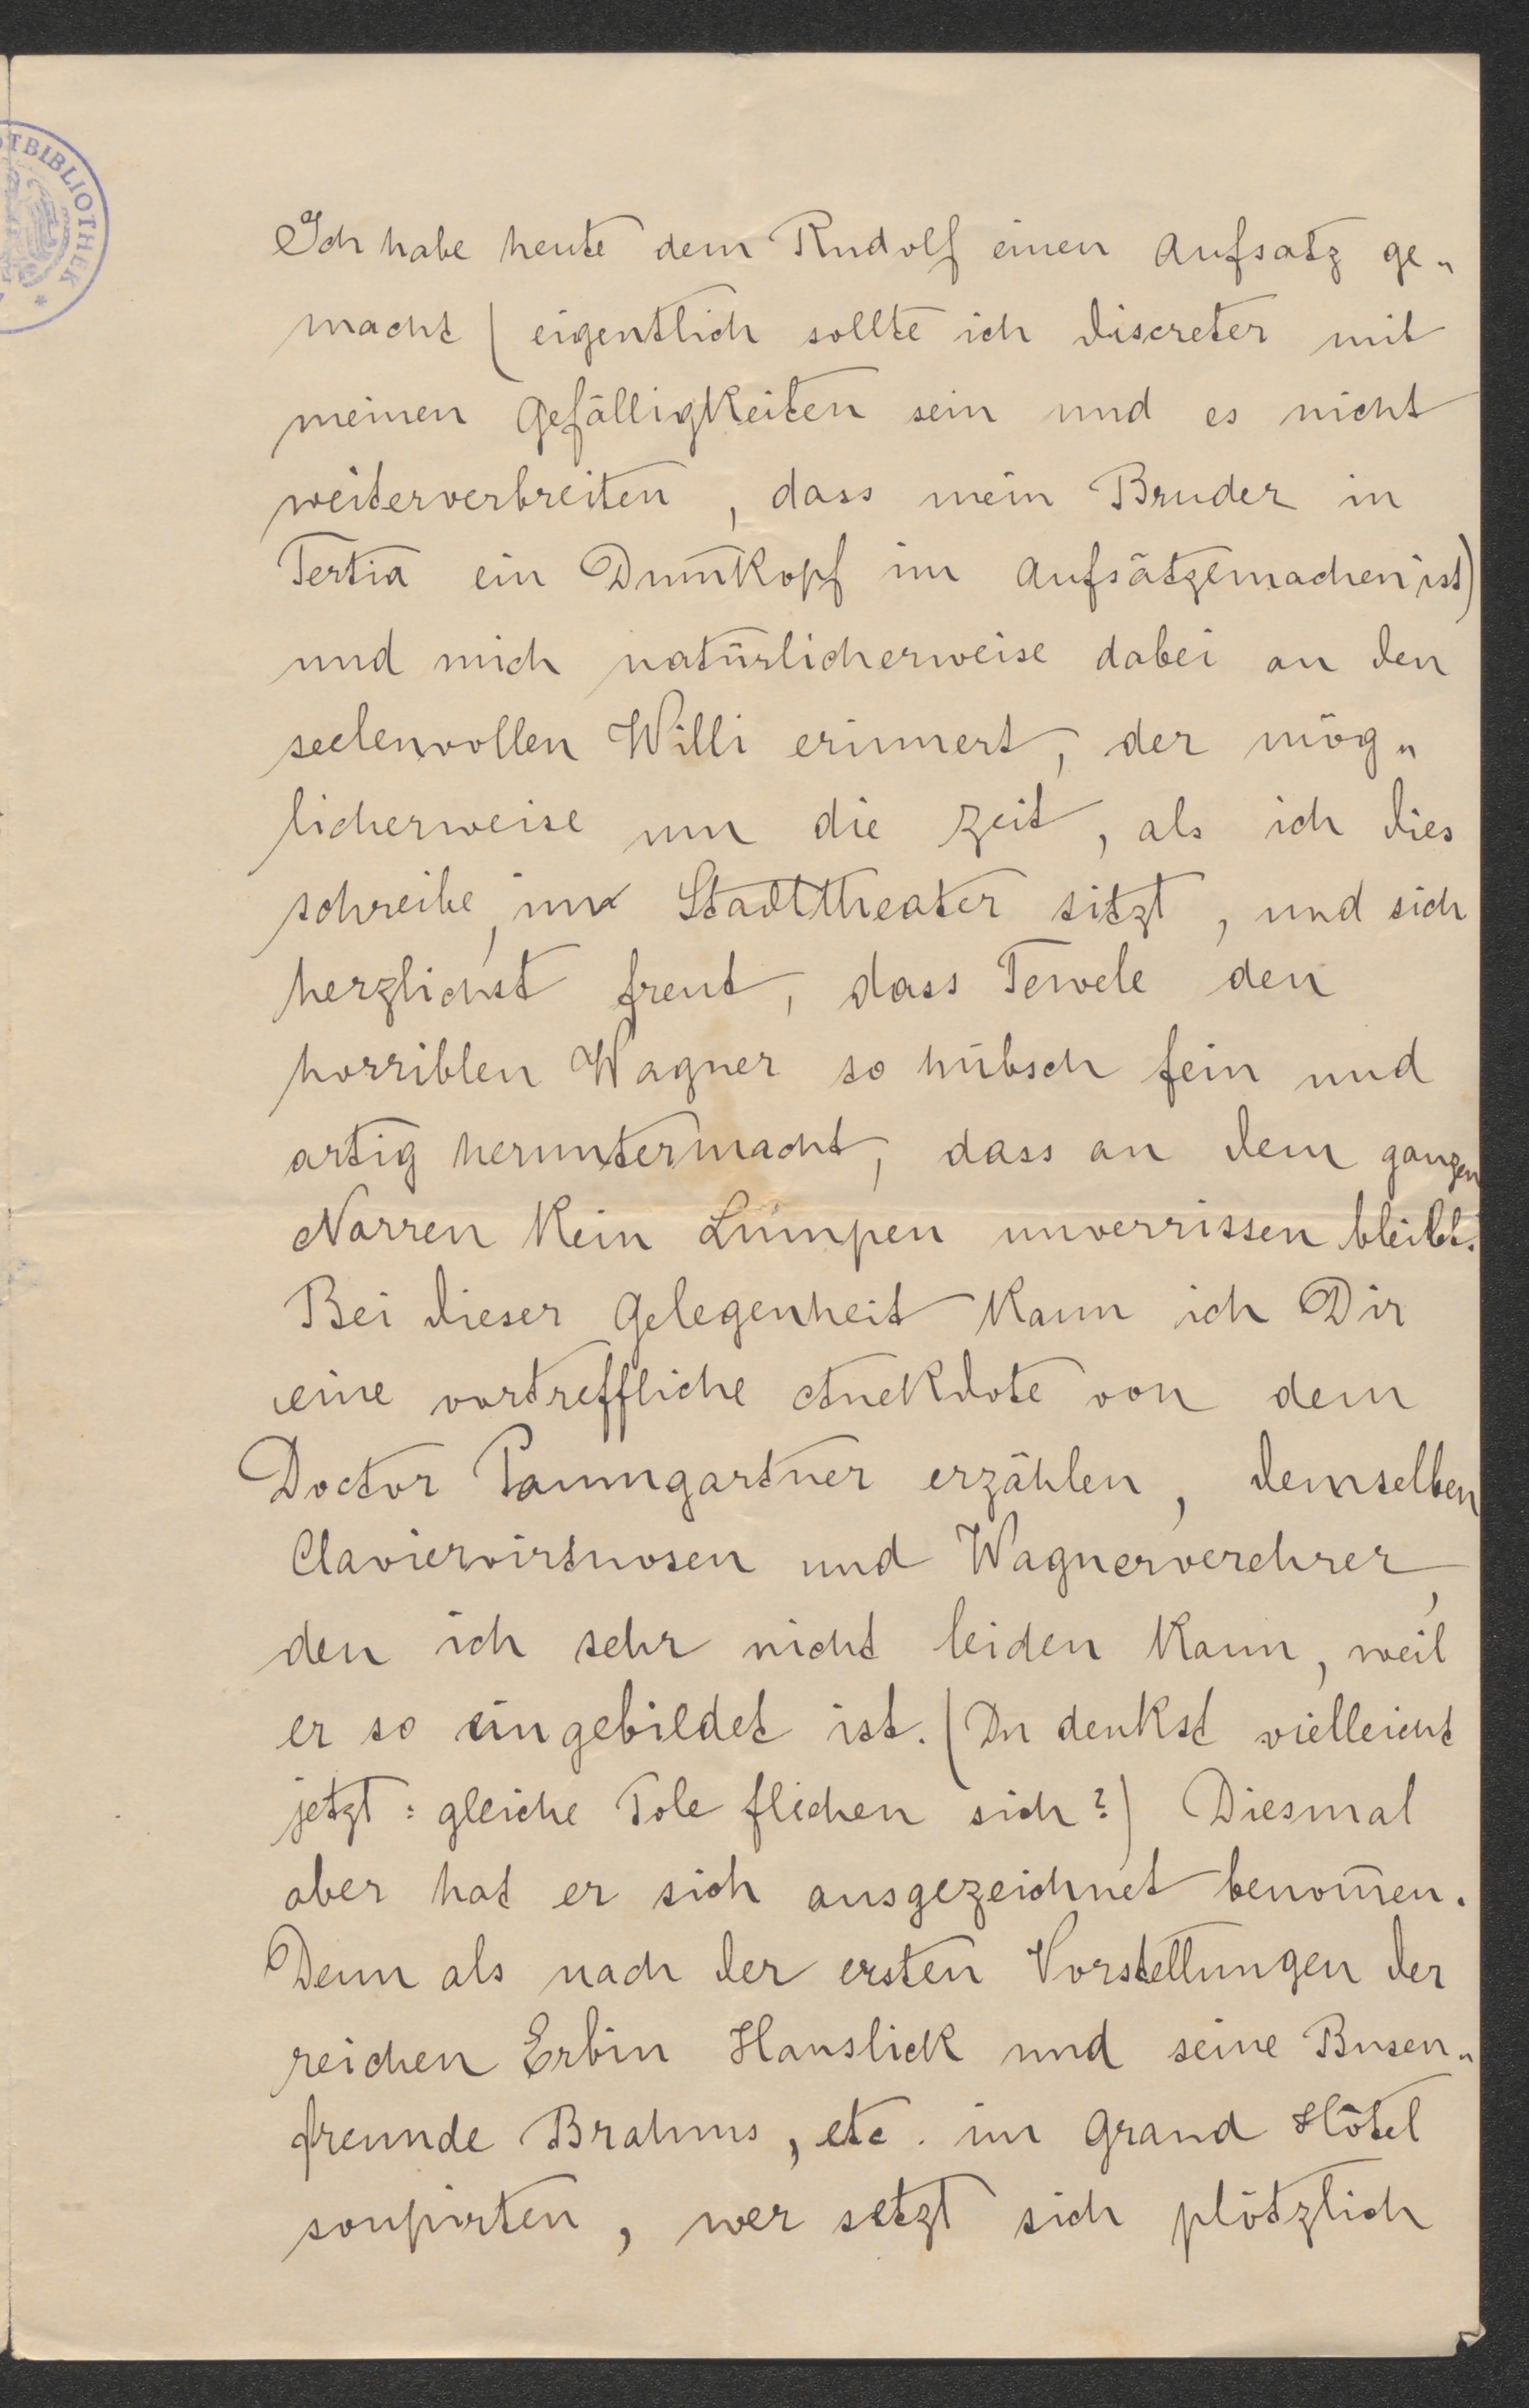 TBIBLIOTHEK
*
Ich habe heute dem Rudolf einen Aufsatz ge„
macht (eigentlich sollte ich discreter mit
meinen Gefälligkeiten sein und es nicht
weiterverbreiten, dass mein Bruder in
Tertia ein Dum̅kopf im Aufsätzemachen ist)
und mich natürlicherweise dabei an den
seelenvollen Willi erinnert, der mög„
licherweise um die Zeit, als ich dies
schreibe, im Stadttheater sitzt, und sich
herzlichst freut, dass Tewele den
horriblen Wagner so hübsch fein und
artig heruntermacht, dass an dem ganzen
Narren kein Lumpen unverrissen bleibt.
Bei dieser Gelegenheit kann ich Dir
eine vortreffliche Anekdote von dem
Doctor Paumgartner erzählen, demselben
Claviervirtuosen und Wagnerverehrer,
den ich sehr nicht leiden kann, weil
er so eingebildet ist. (Du denkst vielleicht
jetzt: gleiche Pole fliehen sich?) Diesmal
aber hat er sich ausgezeichnet benom̅en.
Denn als nach der ersten Vorstellungen der
reichen Erbin Hanslick und seine Busen„
freunde Brahms, etc. im Grand Hôtel
soupirten, wer setzt sich plötzlich